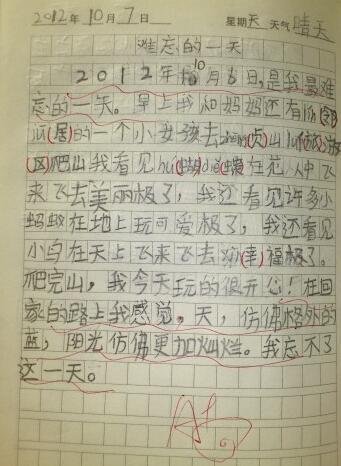 2012年10月7日 星期天 天气 晴天
难忘的一天
2012年10月6日,是我最难
忘的一天。早上我和妈妈还有lín(邻)
jū(居)的一个小女孩去(虎)山lǚ(旅)游
(区)爬山我看见hú(蝴)dié(蝶)在花从中飞
来飞去美丽极了,我还看见许多小
蚂蚁在地上玩可爱极了,我还看见
小鸟在天上飞来飞去(幸)福极了。
爬完山,我今天玩的很开心!在回
家的路上我感觉。天,仿佛格外的
蓝,阳光仿佛更加灿烂。我忘不了
这一天。